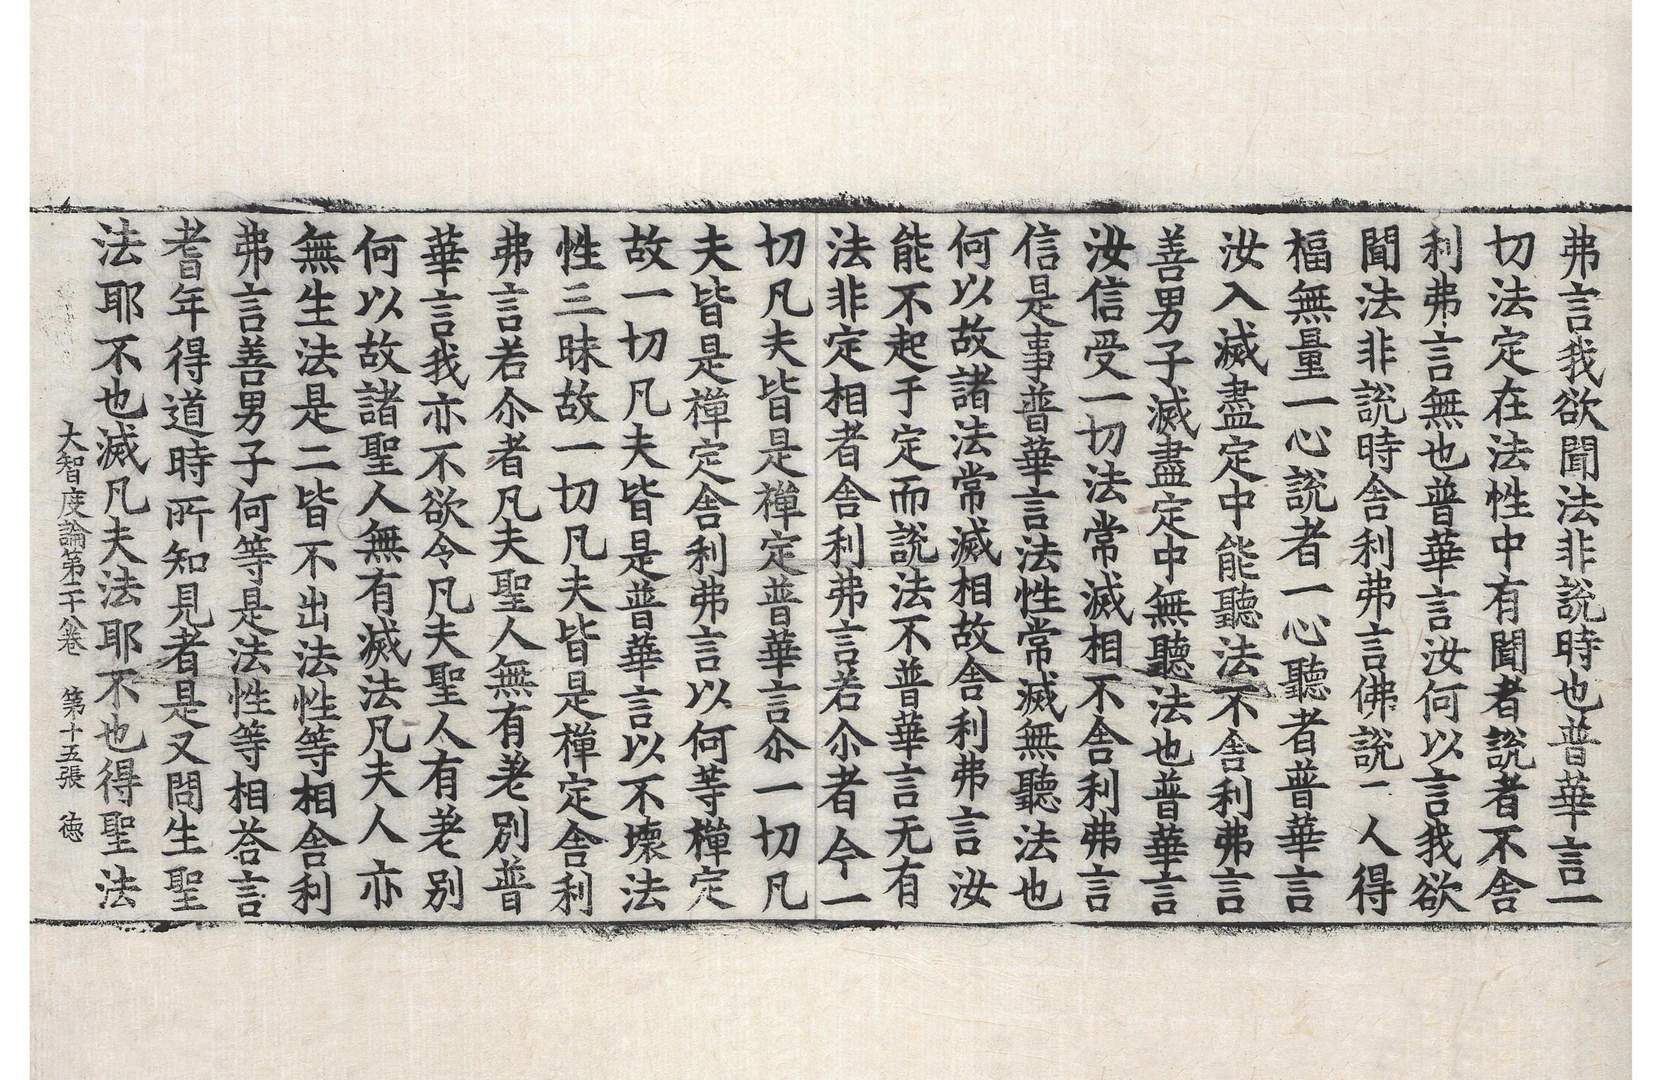 弗言我欲聞法非說時也普華言一
切法定在法性中有聞者說者不舍
利弗言無也普華言汝何以言我欲
聞法非說時舍利弗言佛說二人得
楅無量一心說者一心聽者普華言
汝入滅盡定中能聽法不舍利弗言
善男子滅盡定中無聽法也普華言
汝信受一切法常滅相不舍利弗言
信是事普華言法性常滅無聽法也
何以故諸法常滅相故舍利弗言汝
能不起于定而說法不普華言无有
法非定相者舍利弗言若尒者今一
切凡夫皆是禪定普華言尒一切凡
夫皆是禪定舍利弗言以何等禪定
故一切凡夫皆是普華言以不壞法
性三昧故一切凡夫皆是禪定舍利
弗言若尒者凡夫聖人無有差別普
華言我亦不欲令凡夫聖人有差别
何以故諸聖人無有滅法凡夫人亦
無生法是二皆不出法性等相舍利
弗言善男子何等是法性等相荅言
耆年得道時所知見者是又問生聖
法耶不也滅凡夫法耶不也得聖法
大智度論第二十八卷 第十五張 德